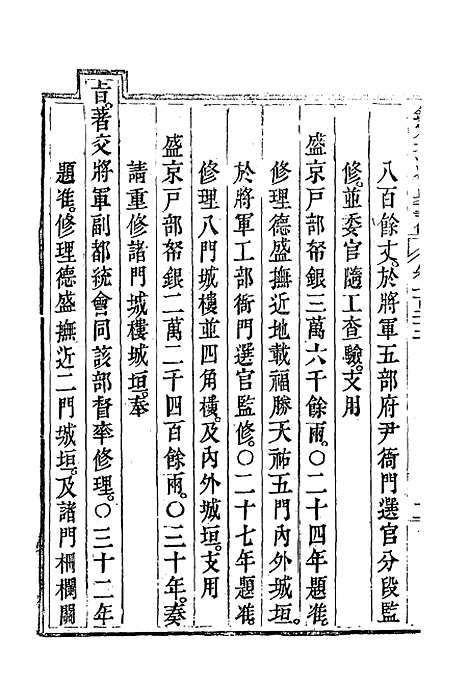 八百餘丈。於將軍五部府尹衙門選官分段監
修。並委官隨工查驗。支用
盛京戸部帑銀三萬六千餘兩。〇二十四年題准。
修理德盛撫近地載福勝天祐五門內外城垣。
於將軍工部衙門選官監修。〇二十七年題准。
修理八門城樓並四角樓。及內外城垣。支用
盛京戸部帑銀二萬二千四百餘兩。〇三十年。奏
請重修諸門城樓城垣。奉
旨。著交將軍副都統會同該部督率修理。〇三十二年
題准。修理德盛撫近二門城垣。及諸門柵欄關